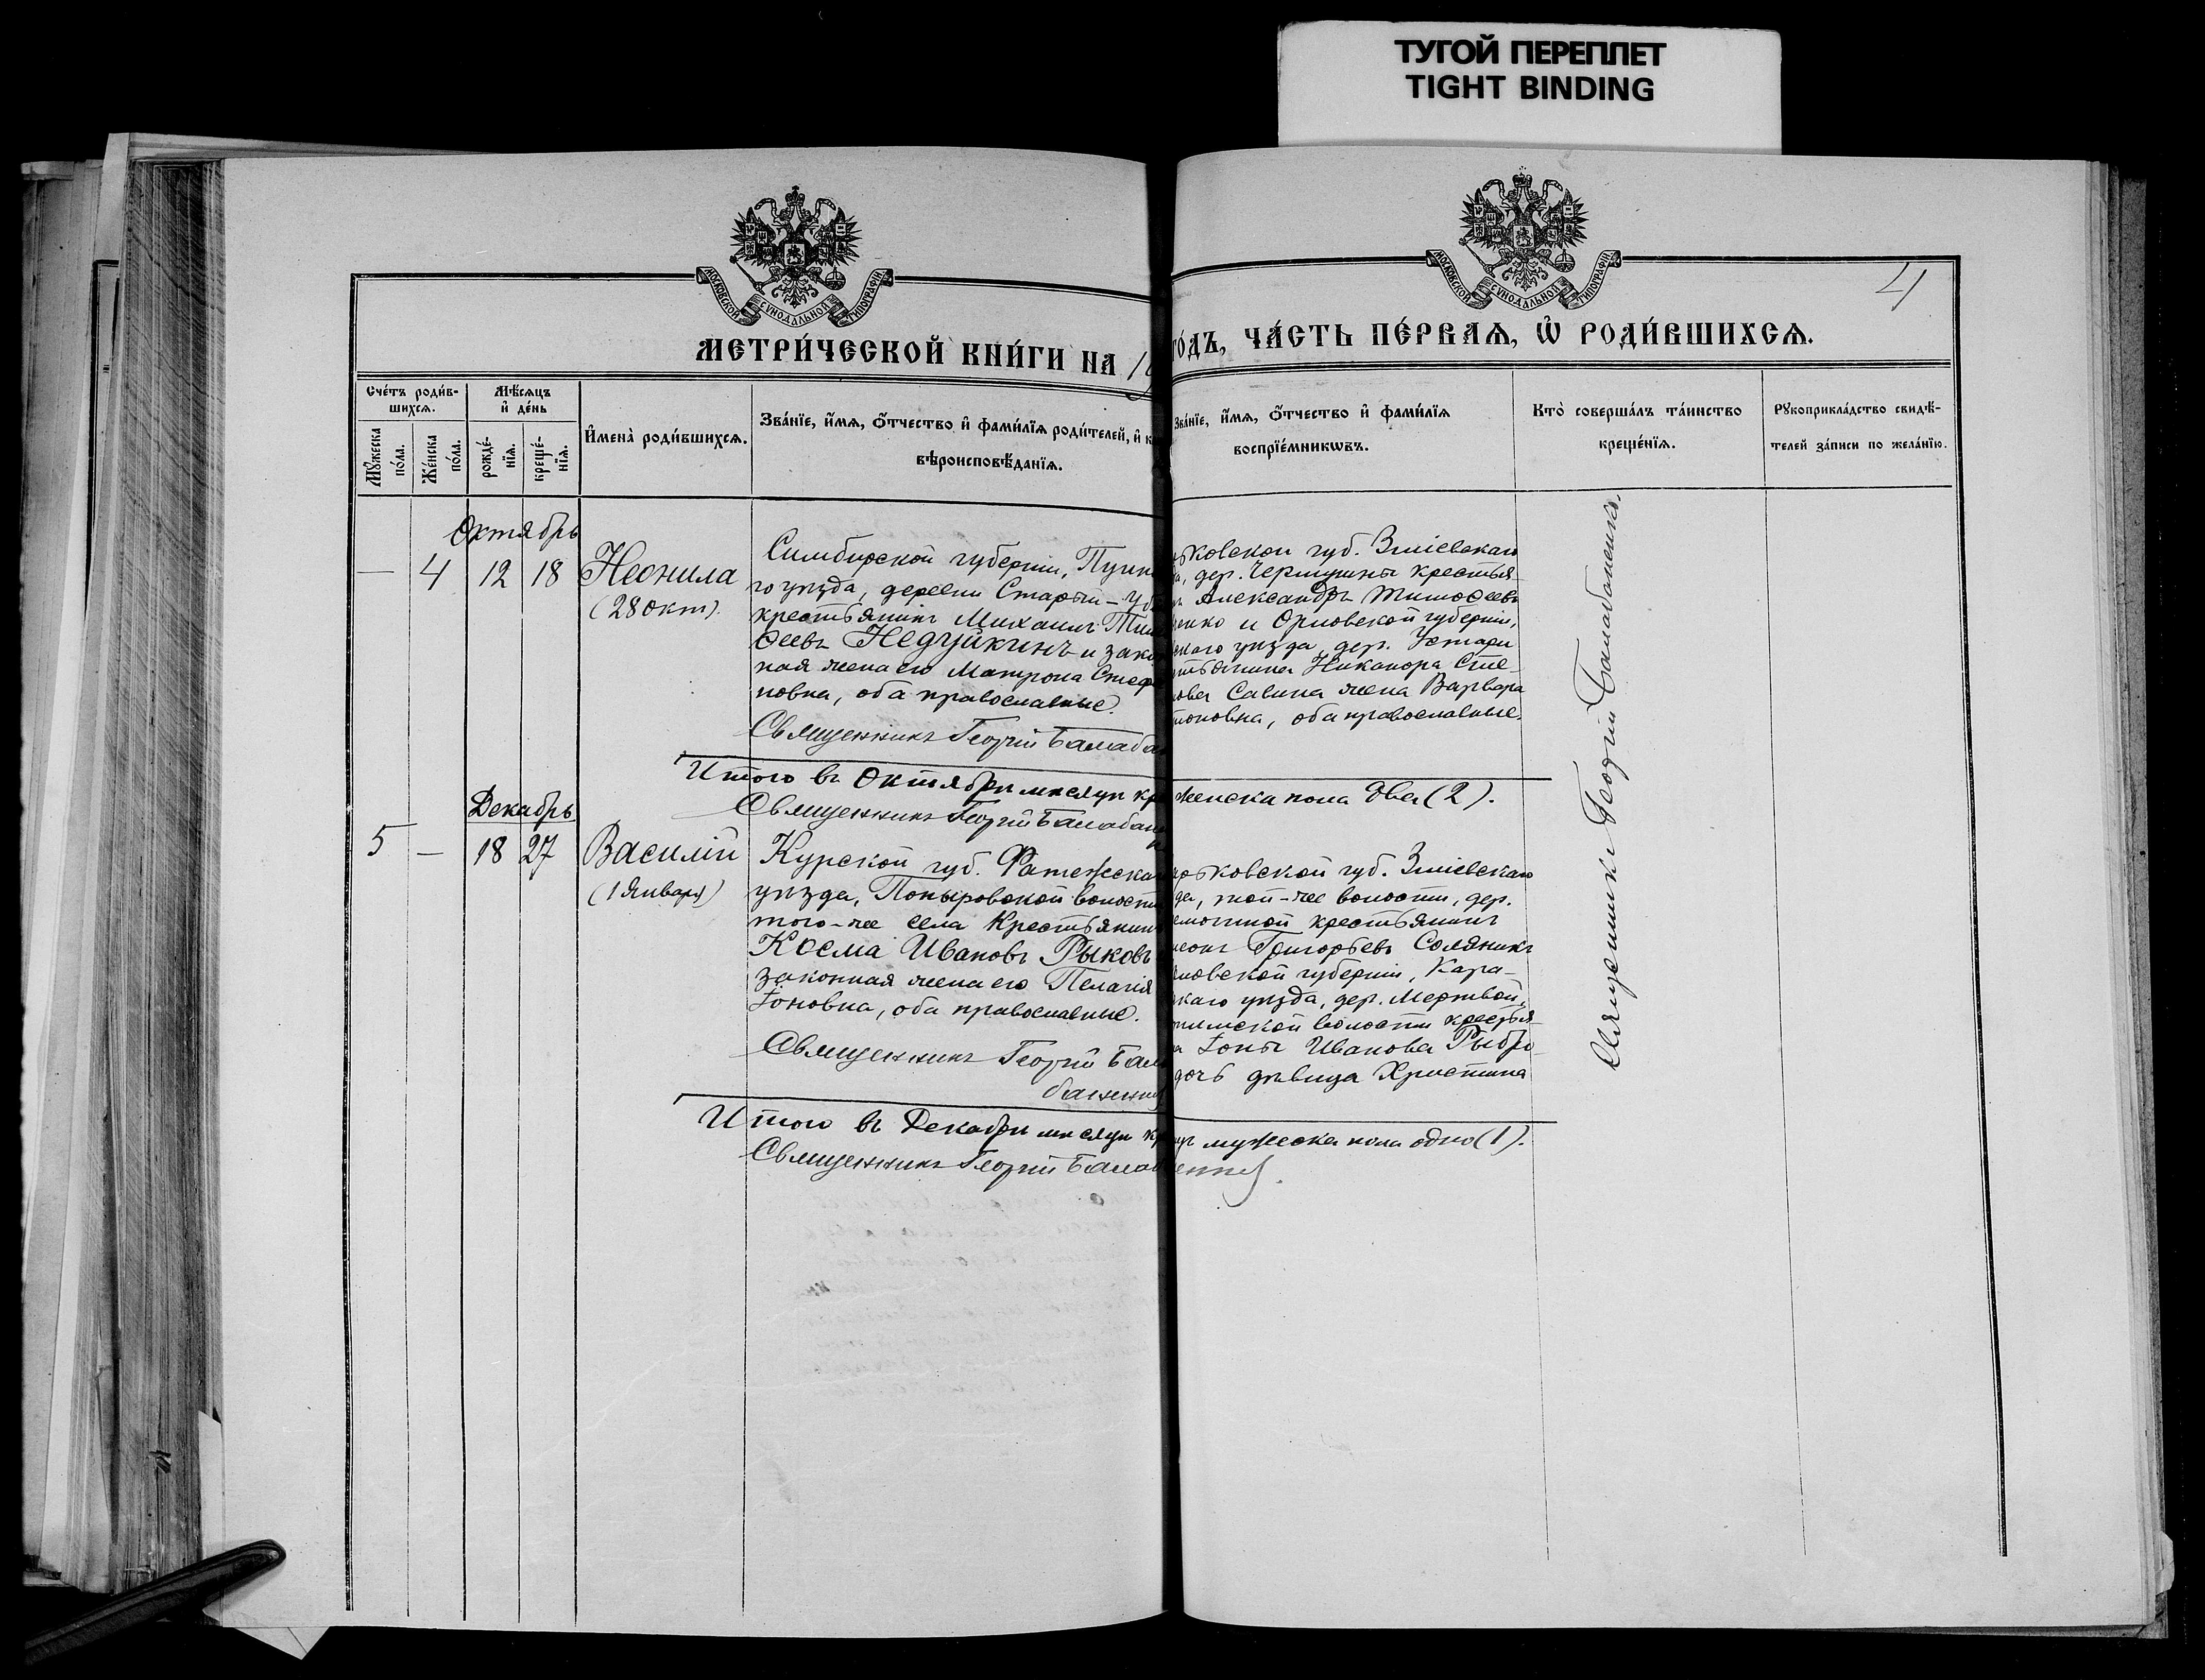 ТУГОЙ ПЕРЕПЛЕТ
TIGHT BINDING
МОСКОВСКОЙ СѴНОДАЛЬНОЙ ТИПОГРАФІИ
МОСКОВСКОЙ СѴНОДАЛЬНОЙ ТИПОГРАФІИ
4
МЕТРИ́ЧЕСКОЙ КНИ́ГИ НА
ГО́ДЪ, ЧА́СТЬ ПЕ́РВАѦ, Ѡ҆ РОДИ́ВШИХСѦ.
Сче́тъ роди́в-
шихсѧ.
Мѣ́сѧцъ
и҆ де́нь
Мꙋ́жеска
по́ла.
Же́нска
по́ла.
рожде́-
нїѧ.
креще́-
нїѧ.
И҆мена̀ роди́вшихсѧ.
Зва́нїе, и҆́мѧ, ѻ҆́тчество и҆ фами́лїѧ роди́телей, и҆ к
вѣроисповѣ́данїѧ.
Зва́нїе, и҆́мѧ, ѻ҆́тчество и҆ фами́лїѧ
воспрїе́мникѡвъ.
Кто̀ соверша́лъ та́инство
креще́нїѧ.
Рꙋкоприкла́дство свидѣ́-
телей за́писи по жела́нїю.
Октябрь
— 4 12 18
Неонила
(28 окт).
Симбирской губерніи,
го уѣзда, деревни Старый-
крестьянинъ Михаилъ Тим
ѳеевъ Недуйкинъ и зако
ная жена его Матрона Стеф
новна, оба православные.
Священникъ Георгій Балабан
ьковской губ. Зміевскаго
дер. крестья-
Александръ Тимоѳеевъ
енко и Орловской губерніи,
скаго уѣзда, дер.
стьянина Никанора Сте-
нова Савина жена Варвара
оновна, оба православные.
Итого въ Октябрѣ мѣсяцѣ кр
женска пола два (2).
Священникъ Георгій Балабан
Декабрь
5 — 18 27
Василій
(1 Января)
Курской губ. Фатежска
уѣзда, Поныровской волости
того-же села крестьянин
Косма Ивановъ Рыковъ
законная жена его Пелагія
Іоновна, оба православные.
Священникъ Георгій Бала
баненко
рьковской губ. Зміевскаго
да, той-же волости, дер.
крестьянинъ
меонъ Григорьевъ Соляникъ
рловской губерніи, Кара-
скаго уѣзда, дер. Мертвой,
волости крестья-
а Іоны Иванова
дочь дѣвица Христина
Итого въ Декабрѣ мѣсяцѣ кр
мужеска пола одно (1).
Священникъ Георгій Балаб
енко
Священникъ Георгій Балабаненко.